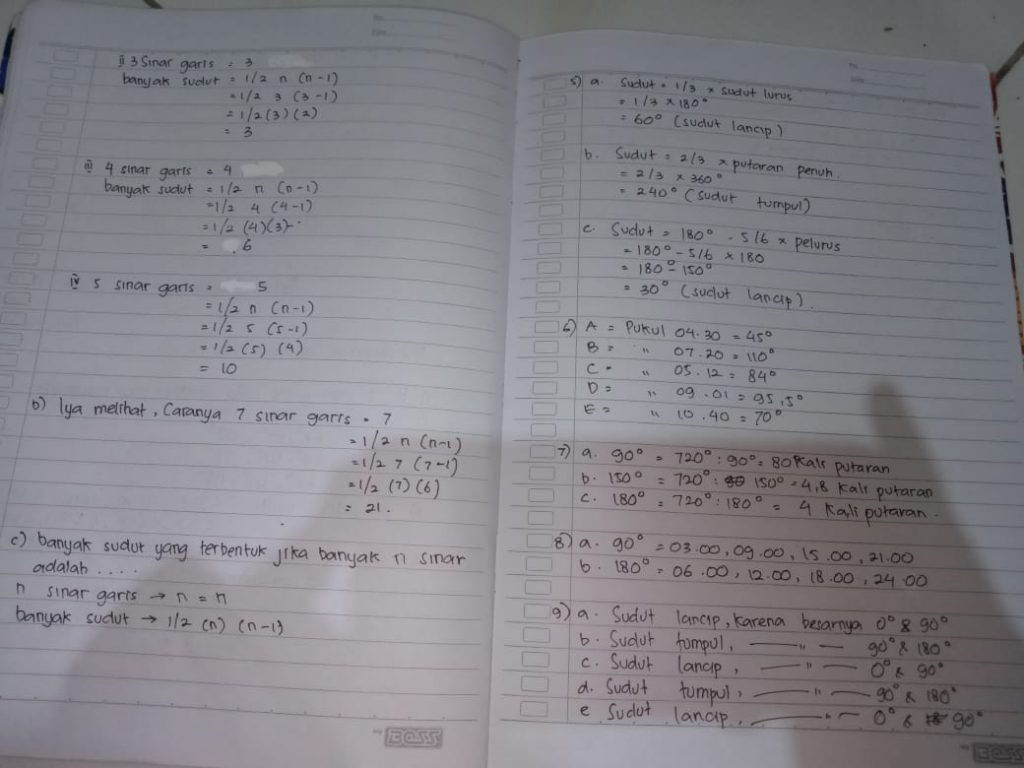 ii 3 Sinar garis = 3
banyak sudut = 1/2 n (n-1)
= 1/2 3 (3-1)
= 1/2 (3) (2)
= 3
iii 4 sinar garis = 4
banyak sudut = 1/2 n (n-1)
= 1/2 4 (4-1)
= 1/2 (4)(3)
= 6
iv 5 sinar garis = 5
= 1/2 n (n-1)
= 1/2 5 (5-1)
= 1/2 (5) (4)
= 10
b) Iya melihat, Caranya 7 sinar garis = 7
= 1/2 n (n-1)
= 1/2 7 (7-1)
= 1/2 (7) (6)
= 21.
c) banyak sudut yang terbentuk jika banyak n sinar
adalah ....
n sinar garis → n = n
banyak sudut → 1/2 (n) (n-1)
BOSS
5) a. Sudut = 1/3 x sudut lurus
= 1/3 x 180°
= 60° (sudut lancip)
b. Sudut = 2/3 x putaran penuh.
= 2/3 x 360°
= 240° (sudut tumpul)
c. Sudut = 180° - 5/6 x pelurus
= 180° - 5/6 x 180
= 180° - 150°
= 30° (sudut lancip).
6) A = Pukul 04.30 = 45°
B = " 07.20 = 110°
C = " 05.12 = 84°
D = " 09.01 = 95,5°
E = " 10.40 = 70°
7) a. 90° = 720° : 90° = 80 Kali putaran
b. 150° = 720° : 150° = 4,8 Kali putaran
c. 180° = 720° : 180° = 4 Kali putaran.
8) a. 90° = 03.00, 09.00, 15.00, 21.00
b. 180° = 06.00, 12.00, 18.00, 24.00
9) a. Sudut lancip, karena besarnya 0° & 90°
b. Sudut tompul, — " — 90° & 180°
c. Sudut lancip, — " — 0° & 90°
d. Sudut tumpul, — " — 90° & 180°
e Sudut lancip, — " — 0° & 90°
BOSS